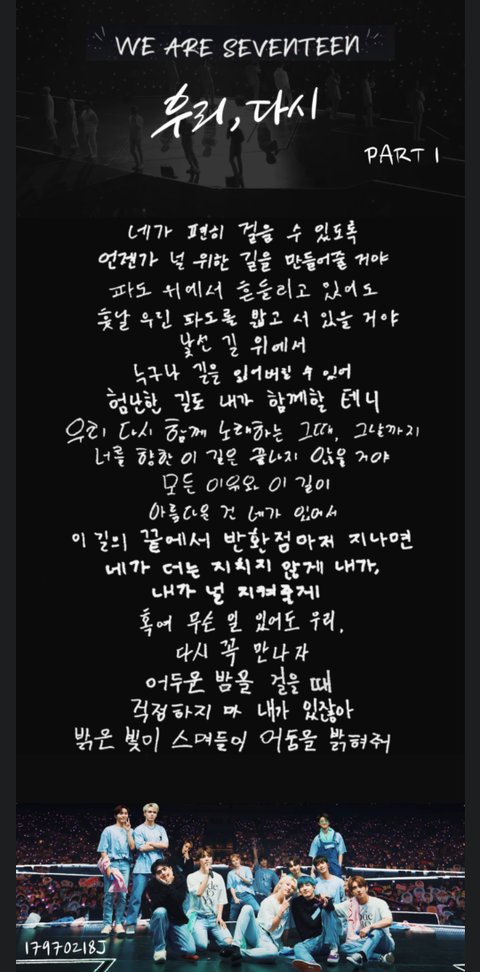 WE ARE SEVENTEEN
우리, 다시
PART 1
네가 편히 걸을 수 있도록
언젠가 널 위한 길을 만들어줄 거야
파도 위에서 흔들리고 있어도
훗날 우린 파도를 밟고 서 있을 거야
낯선 길 위에서
누구나 길을 잃어버릴 수 있어
험난한 길도 내가 함께할 테니
우리 다시 함께 노래하는 그때, 그날까지
너를 향한 이 길은 끝나지 않을 거야
모든 이유와 이 길이
아름다운 건 네가 있어서
이 길의 끝에서 반환점마저 지나면
네가 더는 지치지 않게 내가,
내가 널 지켜줄게
혹여 무슨 일 있어도 우리,
다시 꼭 만나자
어두운 밤을 걸을 때
걱정하지 마 내가 있잖아
밝은 빛이 스며들어 어둠을 밝혀줘
17970218J